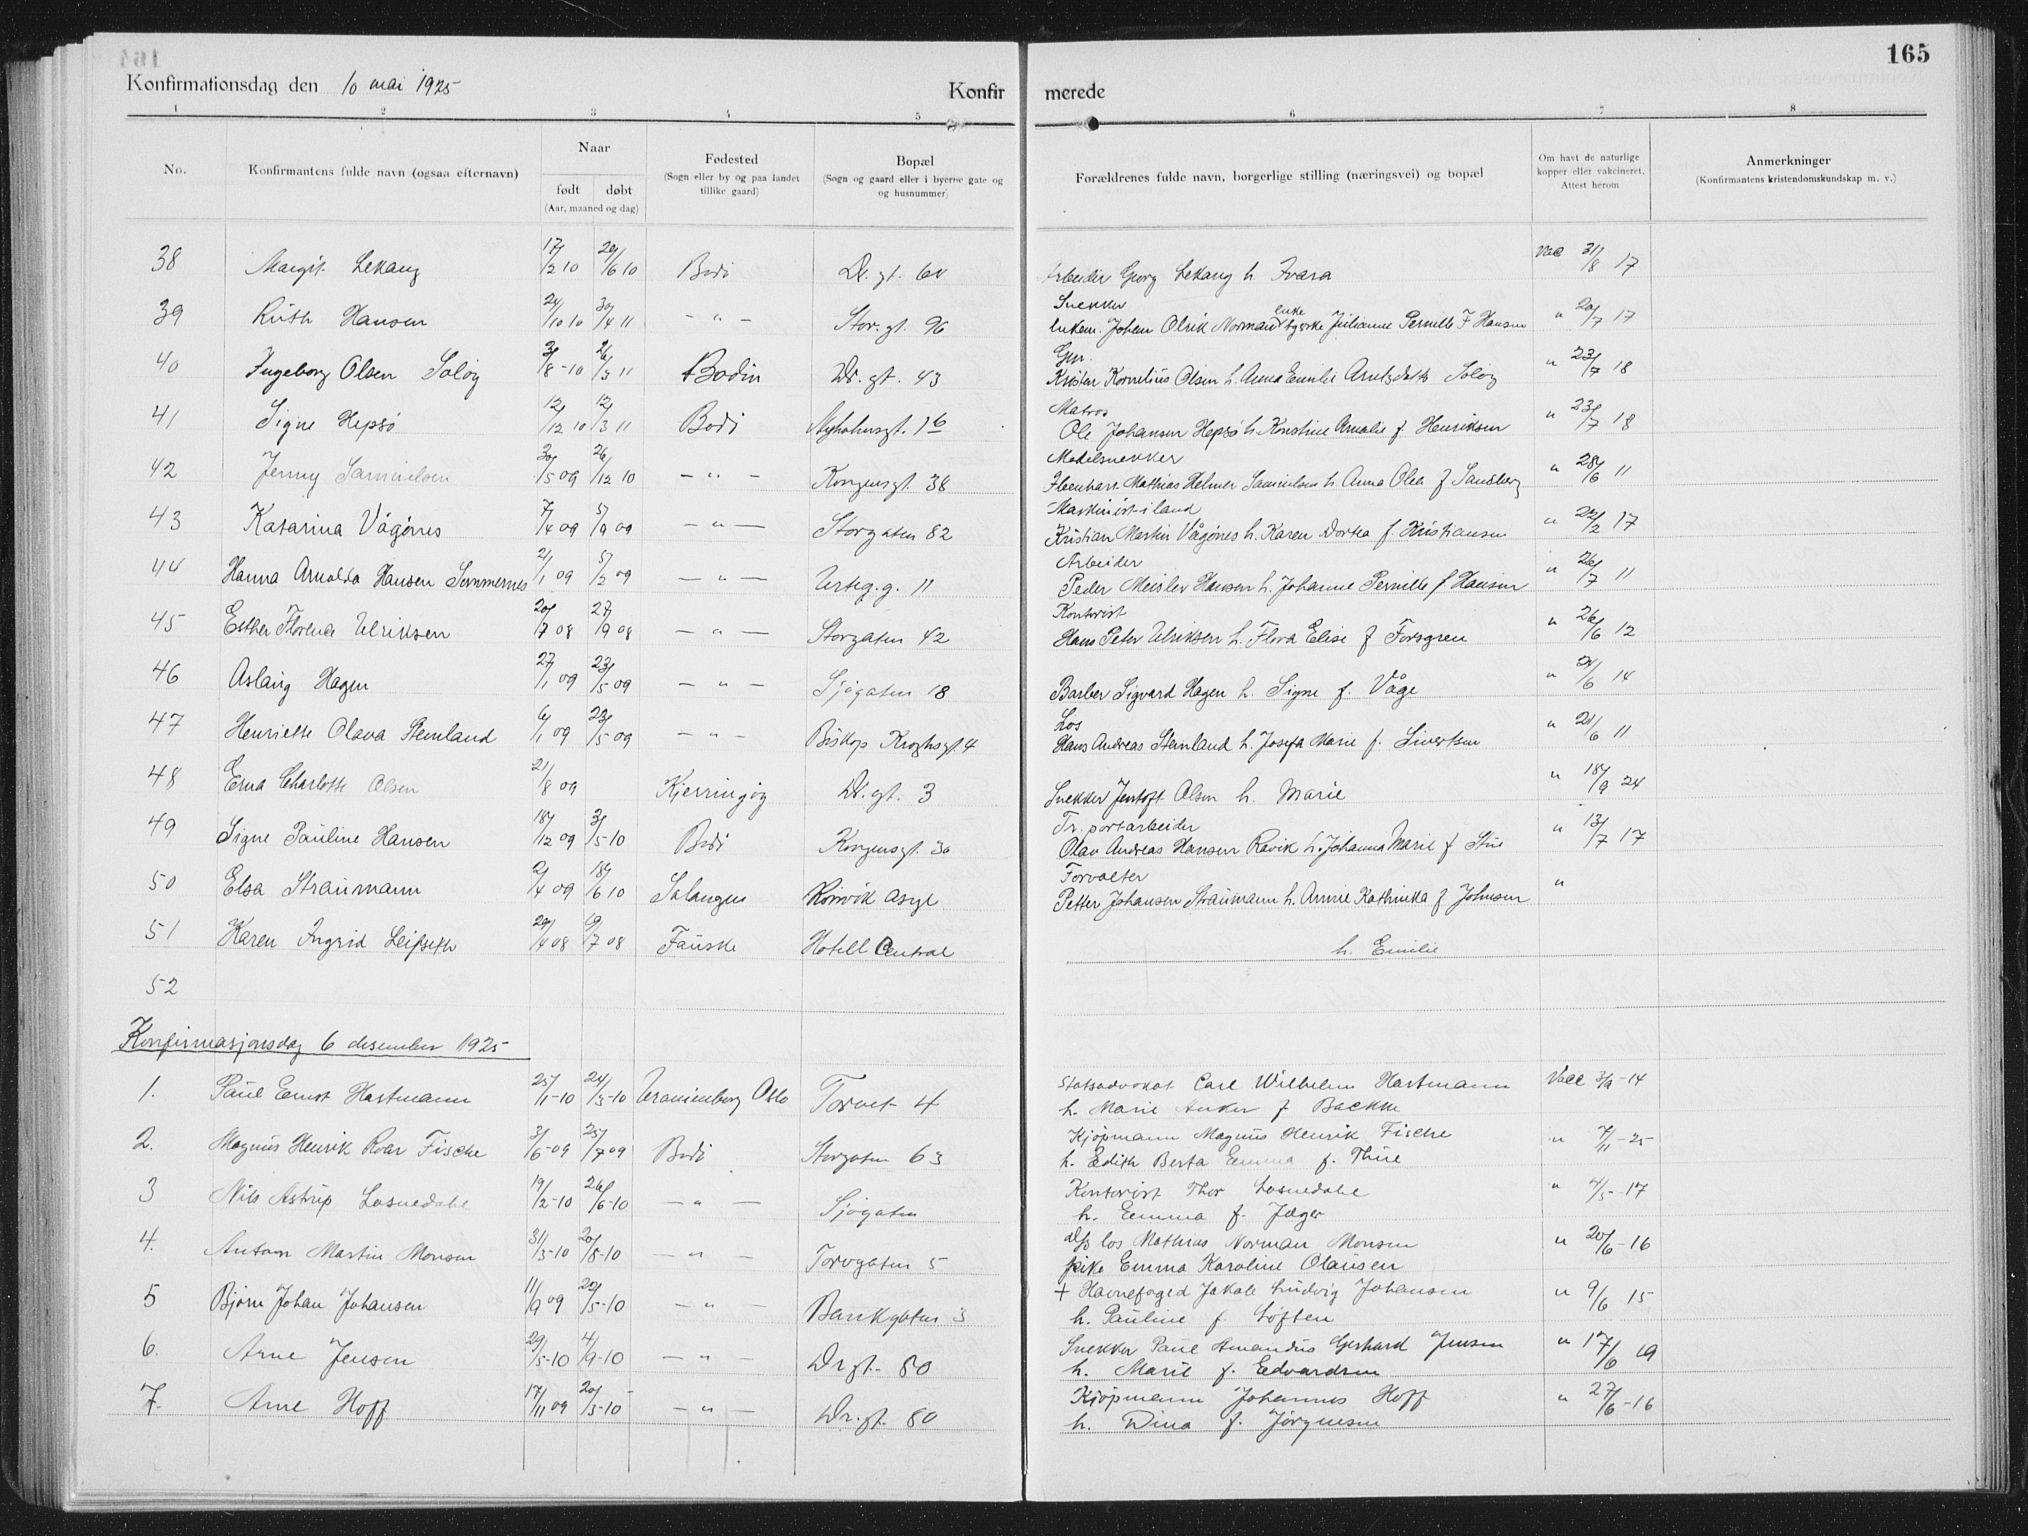 165
Konfirmationsdag den 10 mai 1925 Konfirmerede
1 2 3 4 5 6 7 8
No. Konfirmantens fulde navn (ogsaa efternavn) Naar født døbt (Aar, maaned og dag) Fødested (Sogn eller by og paa landet tillike gaard) Bopæl (Sogn og gaard eller i byerne gate og og husnummer) Forældrenes fulde navn, borgerlige stilling (næringsvei) og bopæl Om havt de naturlige kopper eller vakcineret. Attest herom Anmerkninger (Konfirmantens kristendomskundskap m. v.)
38 Margit Lekang 17/2 10 29/6 10 Bodø Dr. gt. 60 Arbeider Georg Lekang h. Ivara Vac 31/8 17
Snekker
39 Ruth Hansen 24/10 10 30/4 11 — " — Stor. gt. 96 Johan Olrik Norman enke Julianne Pernille F Hansen " 20/7 17
40 Ingeborg Olsen Soløy 3/8 - 10 26/3 11 Bodin Dr. gt. 43 Kristen Kornelius Olsen h. Anna Emilie Arntsdatter Soløy " 23/7 18
Matros
41 Signe Hepsø 12/12 10 12/3 11 Bodø Nyholmsgt. 16 Ole Johansen Hepsø h. Konstine Amalie f Henriksen " 23/7 18
Modelsnekker
42 Jenny Samuelsen 30/5 09 26/12 10 — " — Kongensgt. 38 Mathias Helmer Samuelsen h Anna Olea f Sandberg " 28/6 11
Maskinist i land
43 Katarina Vågønes 7/4 09 5/9 09 — " — Storgaten 82 Kristian Martin Vågønes h. Karen Dortea f. Kristiansen " 22/2 17
Arbeider
44 Hanna Arnolda Hansen Sommernes 2/1 09 5/2 09 — " — 11 Peder Meisler Hansen h. Johanne Pernille f Hansen " 26/7 11
Kontorist
45 Esther Florence Ulriksen 20/7 08 27/9 08 — " — Storgaten 42 Hans Peter Ulriksen h. Flora Elise f Forsgren " 26/6 12
46 Aslaug Hagen 27/1 09 23/5 09 — " — Sjøgaten 18 Barber Sigvard Hagen h. Signe f. Våge " 21/6 14
Los
47 Henriette Olava Stemland 6/1 09 23/5 09 — " — Biskop Kroghsgt. 4 Hans Andreas Stemland h. Josefa Marie f. Sivertsen " 21/6 11
48 Erna Charlotte Olsen 21/8 09 Kjerringøy Dr. gt. 3 Snekker Jentoft Olsen h. Marie " 18/9 24
Tr. portarbeider
49 Signe Pauline Hansen 18/12 09 3/5-10 Bodø Kongensgt. 30 Olav Andreas Hansen Ravik h. Johanna Marie f Stue " 13/7 17
Forvalter
50 Elsa Straumann 2/4 09 18/6 10 Salangen Rønvik asyl Petter Johansen Straumann h. Annie Kathinka f Johnsen "
51 Karen Ingrid Leifseth 29/4 08 9/7 08 Fauske Hotell Central h. Emilie
52
Konfirmasjonsdag 6 desember 1925
1. Paul Ernst Hartmann 25/1-10 24/3-10 Uranienborg Oslo Torvet 4 Statsadvokat Carl Wilhelm Hartmann Vacc 3/9-14
h. Marie Anker f Backke
2. Magnus Henrik Roar Fischer 3/6-09 25/7 09 Bodø Storgaten 63 Kjøpmann Magnus Henrik Fische " 7/11-25
h. Edith Berta Emma f. Thue
3 Nils Astrup Losnedahl 19/2-10 26/6-10 — " — Sjøgaten Kontorist Thor Losnedahl " 4/5-17
h. Emma f. Jæger
4. Antoan Martin Monsen 31/3-10 20/8-10 — " — Torvgaten 5 los Mathias Norman Monsen " 20/6-16
pike Emma Karoline Olausen
5 Bjørn Johan Johansen 11/9 09 29/5-10 — " — Bankgaten 3 + Havnefoged Jakob Ludvig Johansen " 9/6 15
h. Pauline f Løften
6. Arne Jensen 29/5-10 4/9-10 — " — Dr gt. 80 Snekker Paul Amandus Gerhard Jensen " 17/6 19
h. Marie f. Edvardsen
7. Arne Hoff 17/11 09 20/3-10 — " — Dr. gt. 80 Kjøpmann Johannes Hoff " 27/6-16
h. Dina f. Jørgensen